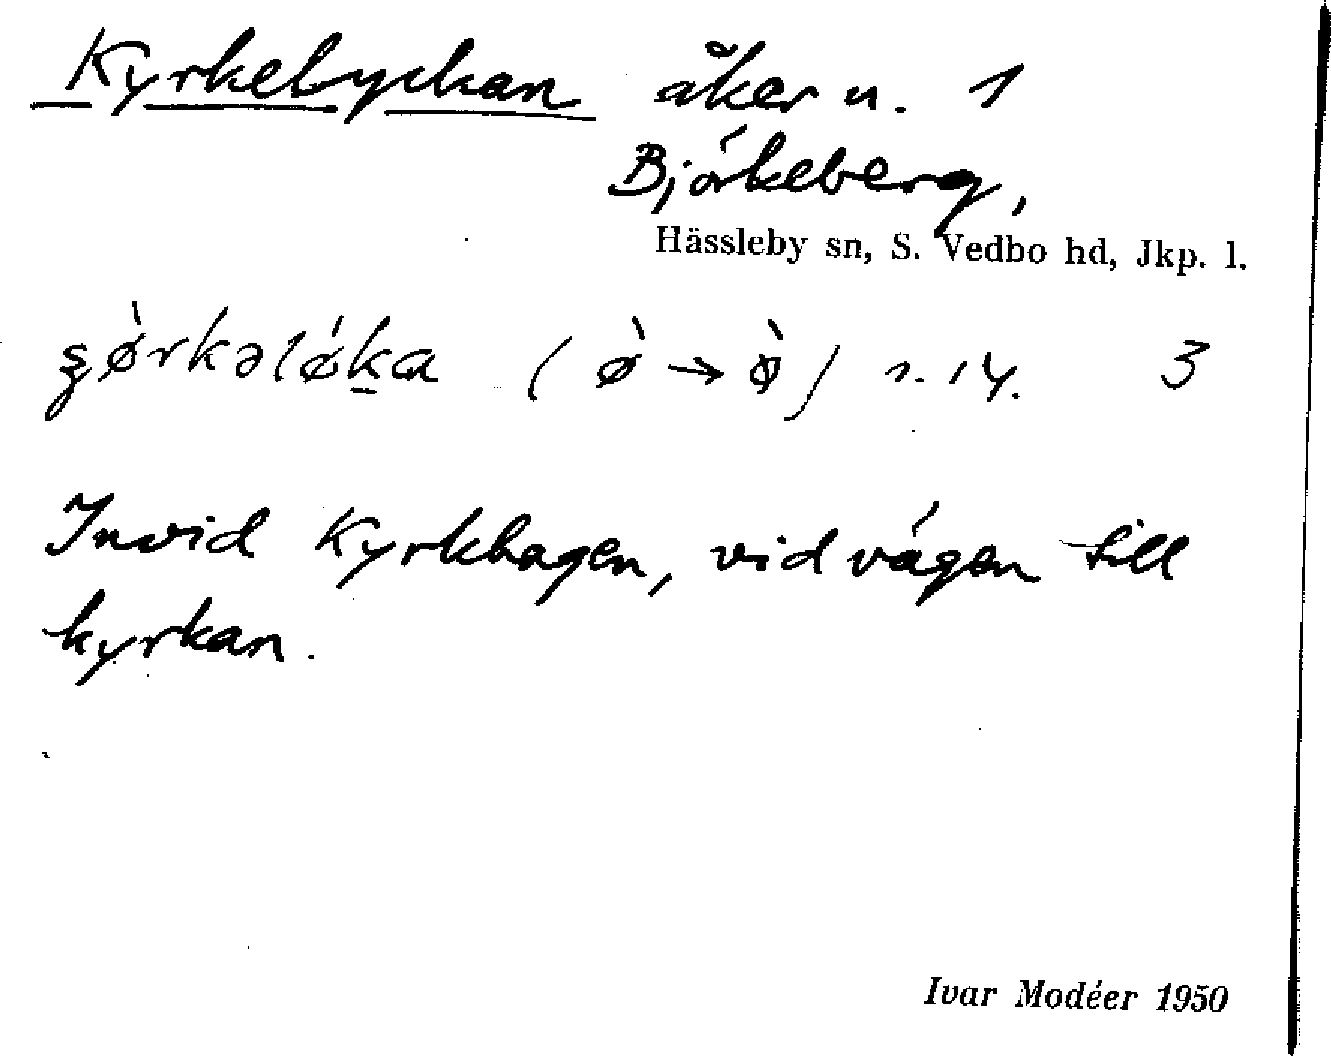 Kyrkelyckan åker u. 1
Björkeberg,
Hässleby sn, S. Vedbo hd, Jkp. l.
3
Invid Kyrkhagen, vid vägen till
kyrkan.
Ivar Modéer 1950